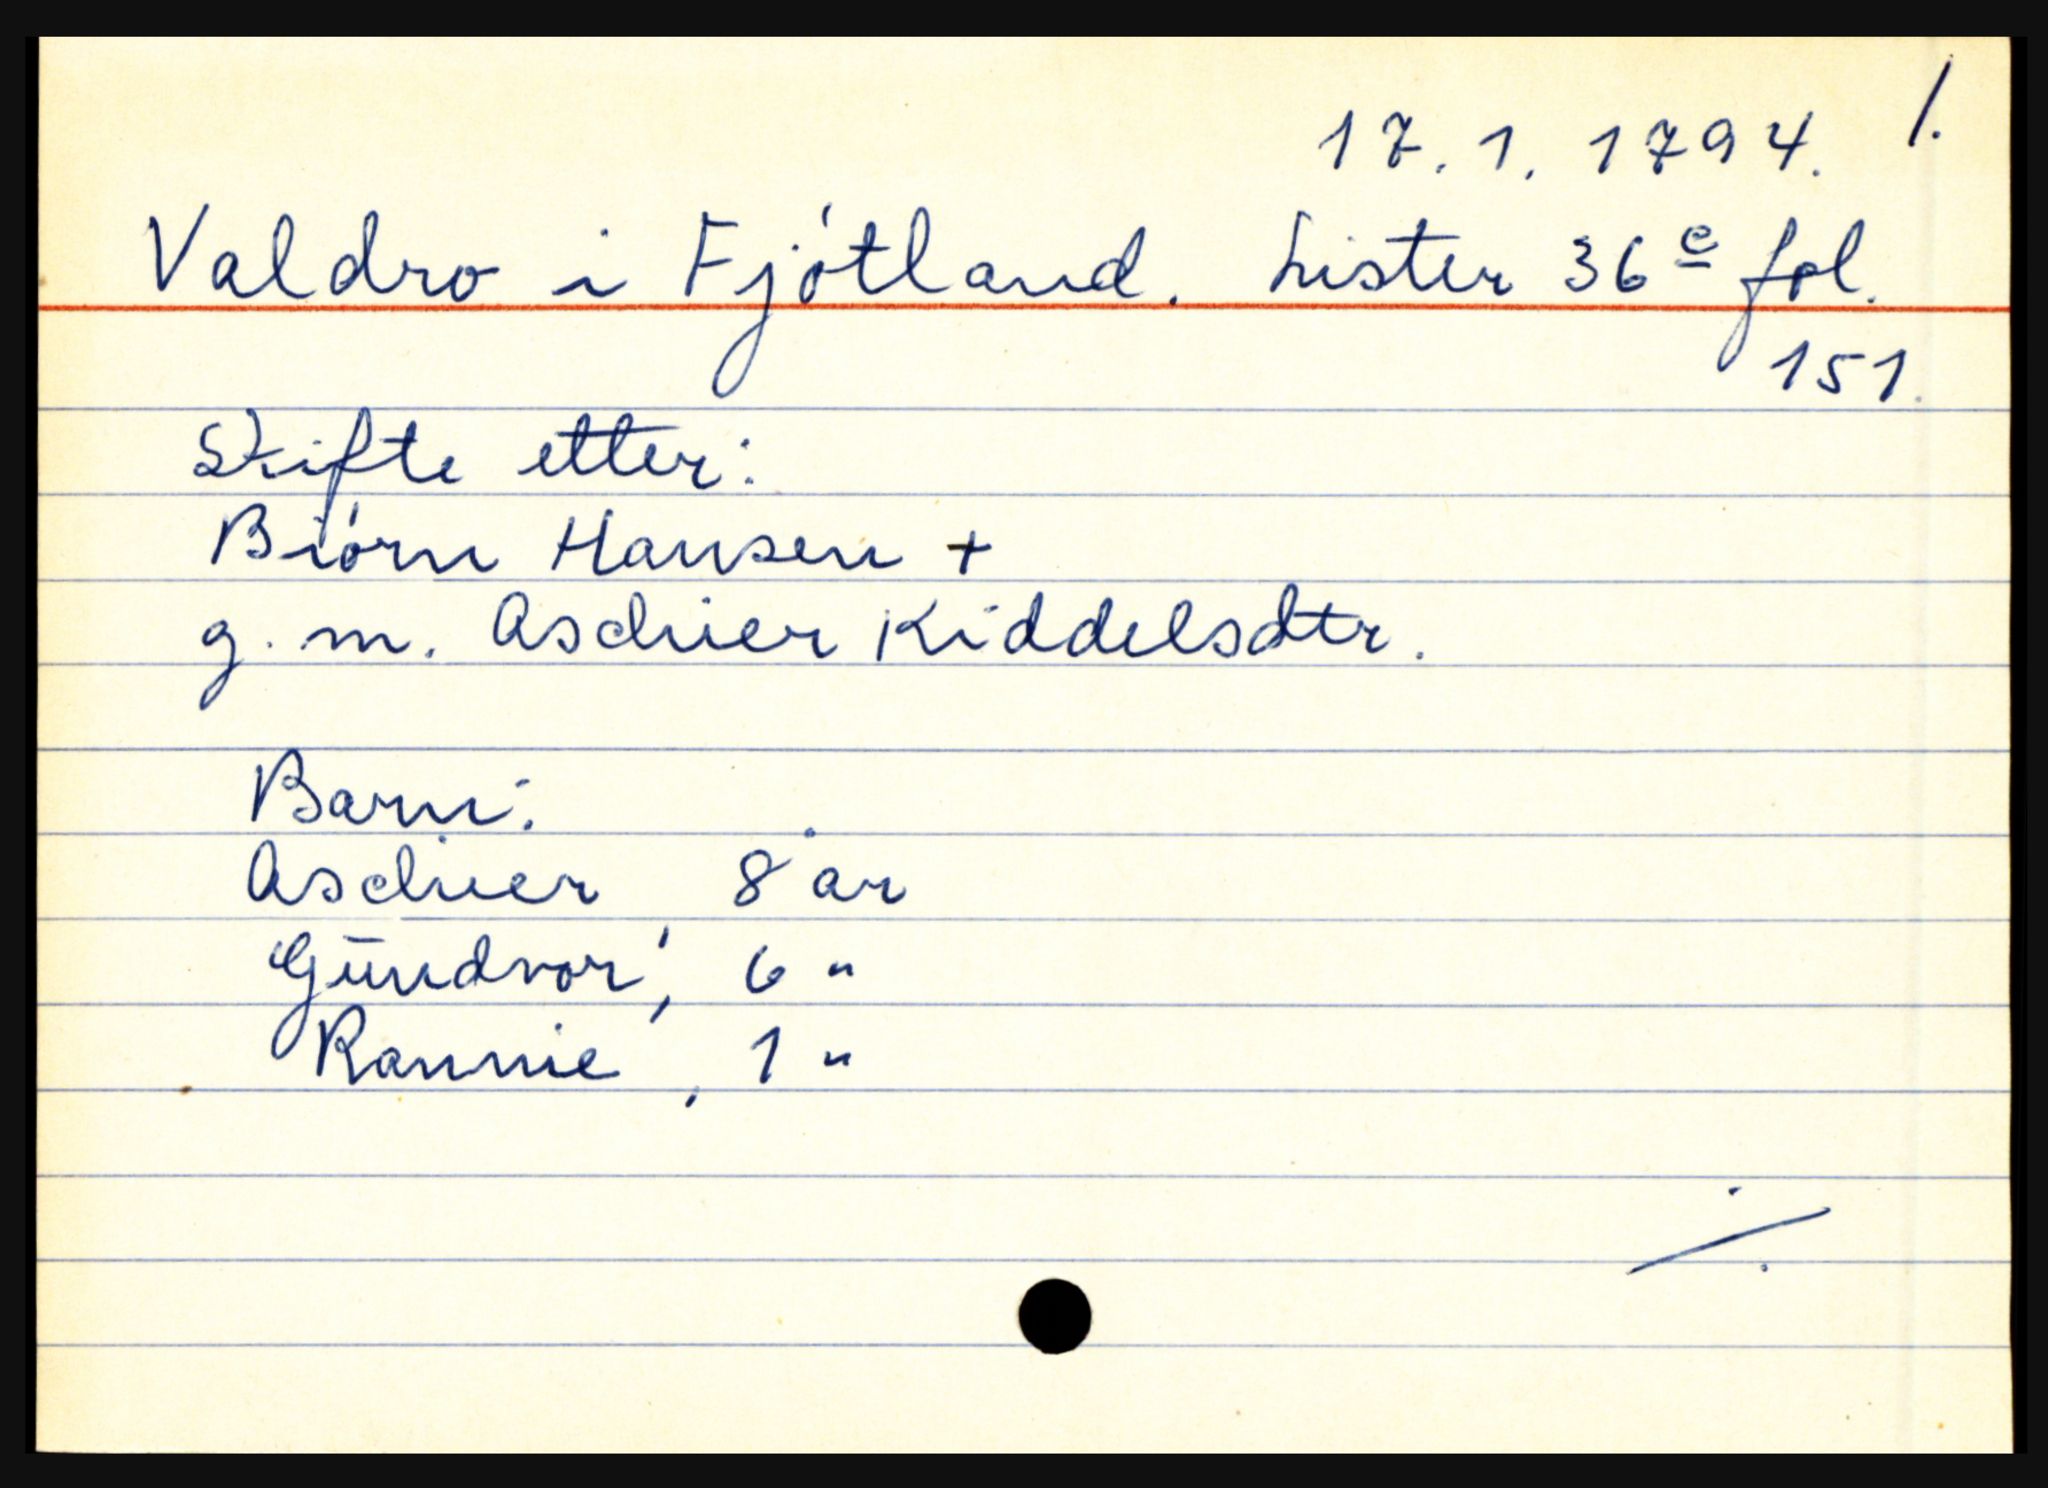 17. 1. 1794. 1.
Valdro i Fjótland. Lister 36 e fol.
151.
Skifte etter:
Biórn Hansen +
g. m. Aschier Kiddelsdtr.
Barn:
Aschier 8 år
Gūndvor, 6 "
Rannie, 1 "